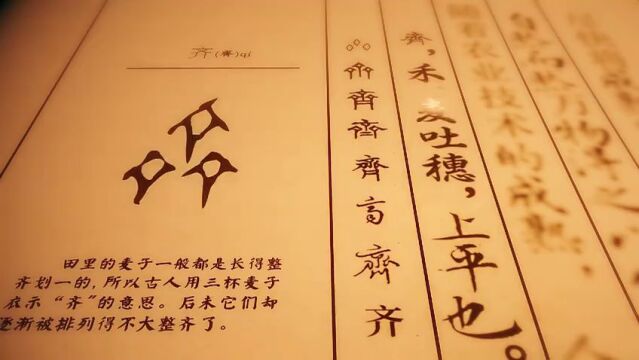 齐(齊)qí
田里的麦子一般都是长得整
齐划一的，所以古人用三杯麦子
表示“齐”的意思。后来它们却
逐渐被排列得不大整齐了。
齊 齊 齊 齐
齊，禾麦吐穗，上平也。
随着农业技术的成熟，